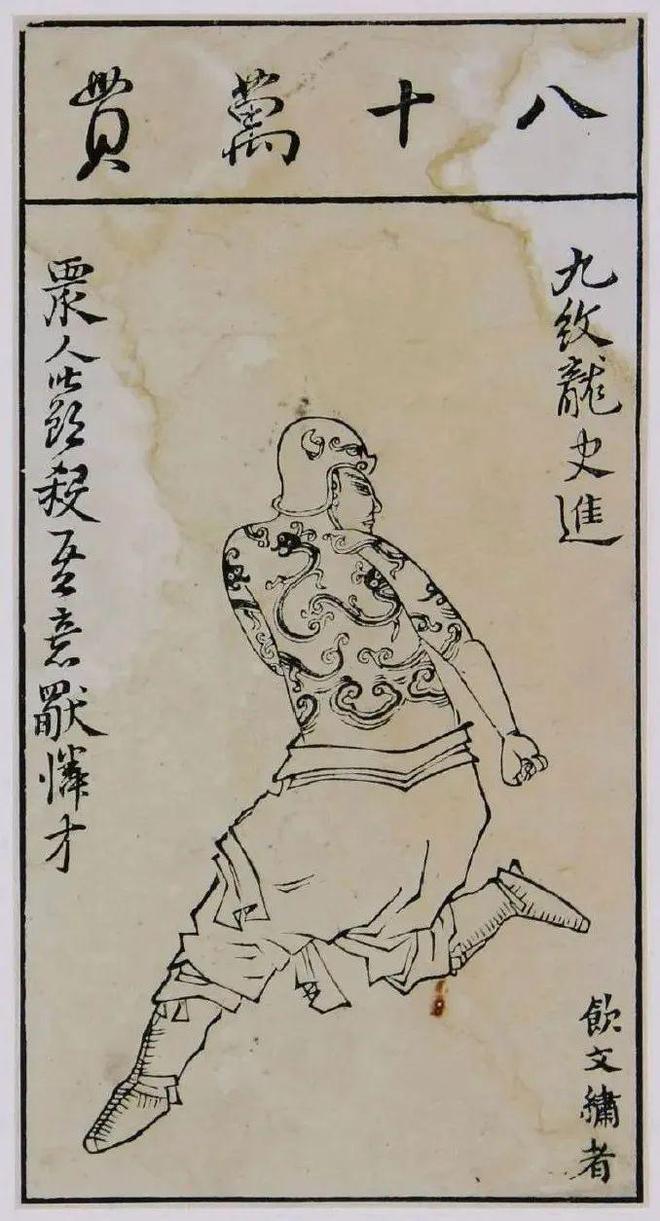 八十萬貫
九紋龍史進
眾人皆欲殺吾意獨憐才
飲文繡者